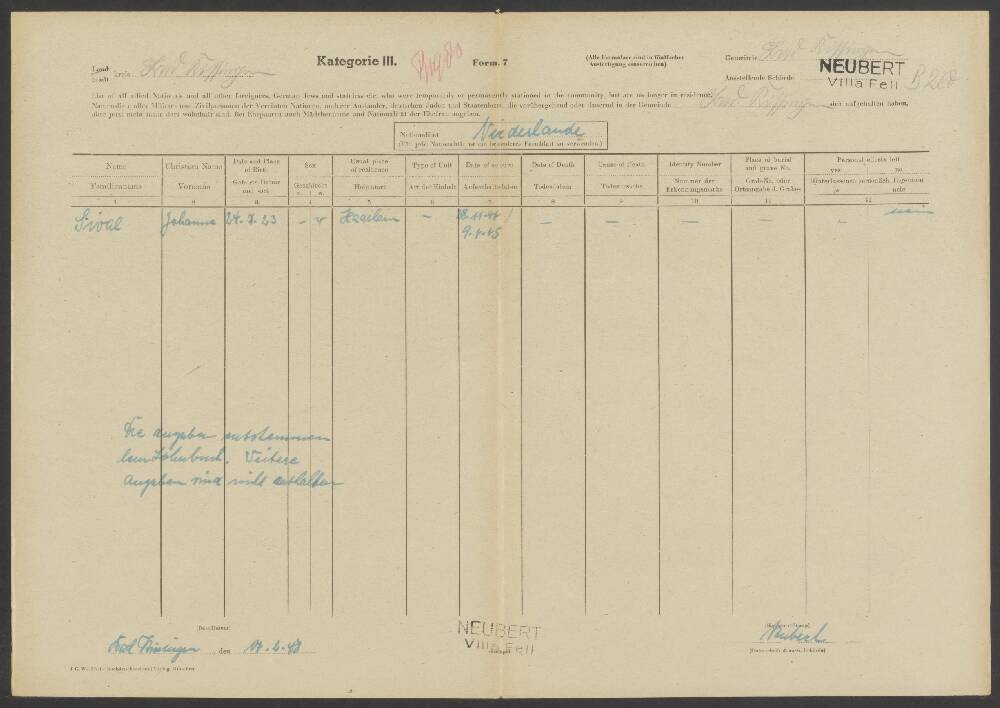 Land- kreis Bad Kissingen
Stadt-
Kategorie III.
Form. 7
(Alle Formulare sind in fünffacher
Ausfertigung einzureichen)
Gemeinde Bad Kissingen
Ausstellende Behörde
NEUBERT
Villa Fell
B 268
List of all allied Nationals and all other foreigners, German Jews and stateless etc. who were temporarily or permanently stationed in the community, but are no longer in residence.
Namensliste aller Militär- und Zivilpersonen der Vereinten Nationen, anderer Ausländer, deutschen Juden und Staatenlosen, die vorübergehend oder dauernd in der Gemeinde Bad Kissingen sich aufgehalten haben,
aber jetzt nicht mehr dort wohnhaft sind. Bei Ehepaaren auch Mädchenname und Nationalität der Ehefrau angeben.
Nationalität Niederlande
(Für jede Nationalität ist ein besonderes Formblatt zu verwenden)
Name Christian Name Date and Place of Birth Sex Usual place of residence Type of Unit Date of sojourn Date of Death Cause of Death Identity Number Place of burial and grave No. Personal effects left yes no
Familienname Vorname Geburts-Datum und -ort Geschlecht m. w. Heimatort Art der Einheit Aufenthaltsdaten Todesdatum Todesursache Nummer der Erkennungsmarke Grab-Nr. oder Ortsangabe d. Grabes Hinterlassenes persönlich. Eigentum ja nein
1 2 3 4 5 6 7 8 9 10 11 12
Johanna 24.7.23 – Haarlem – – – – – – nein
Die Angaben entstammen
dem Lohnbuch. Weitere
Angaben sind nicht enthalten
Bad Kissingen, den
NEUBERT
Villa Fell
Neubert